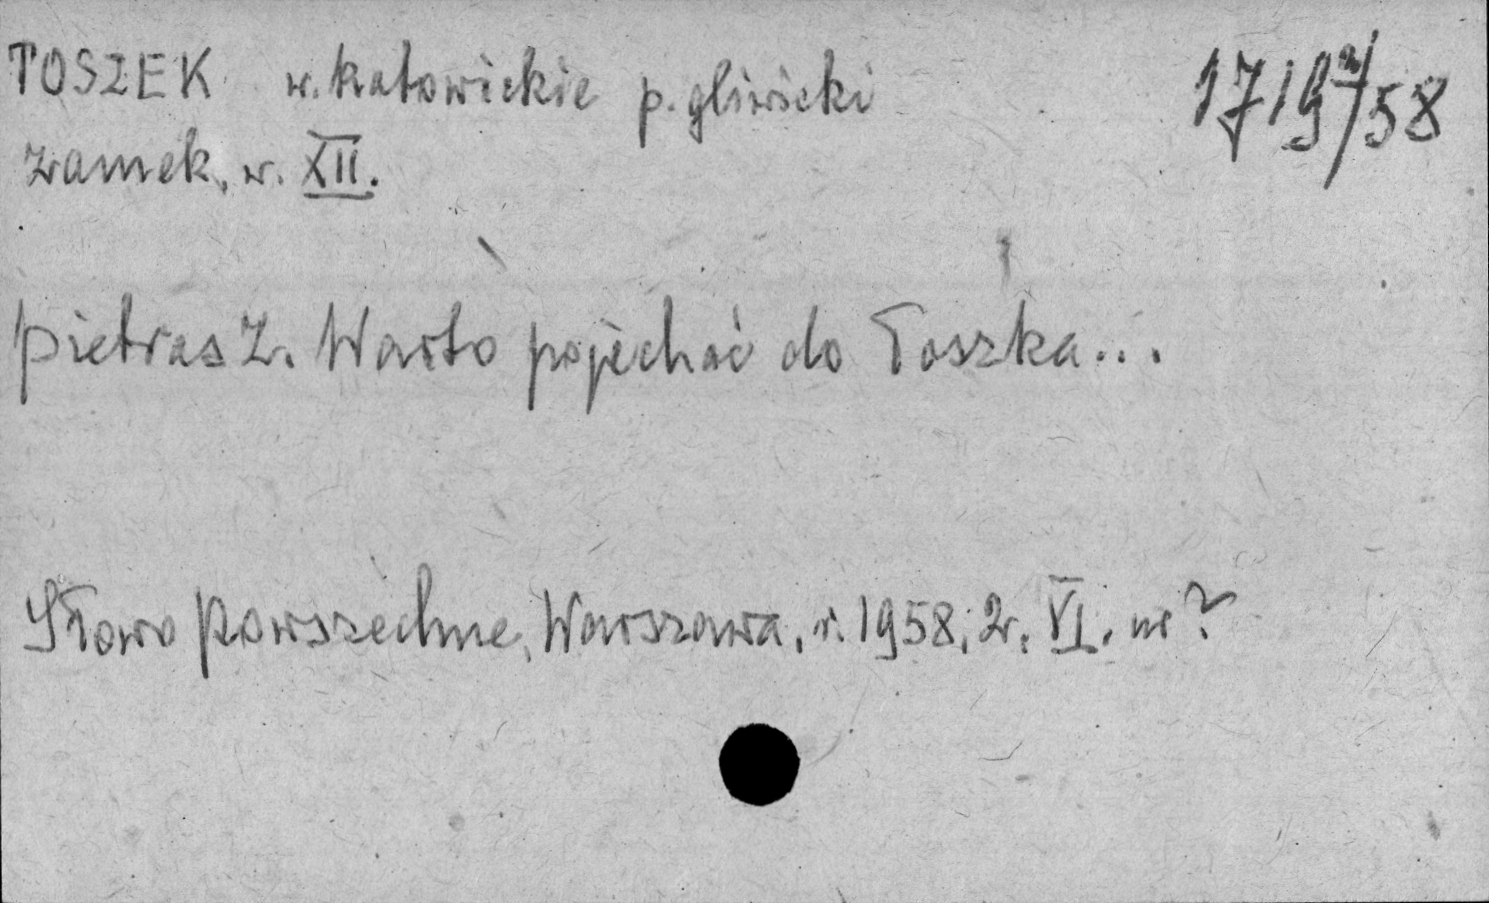 TOSZEK w. katowickie p. gliwicki 1719a/58
zamek, w. XII.
Pietras Z. Warto pojechać do Toszka...
Słowo Powszechne, Warszawa, r. 1958, 2r. VI. nr ?